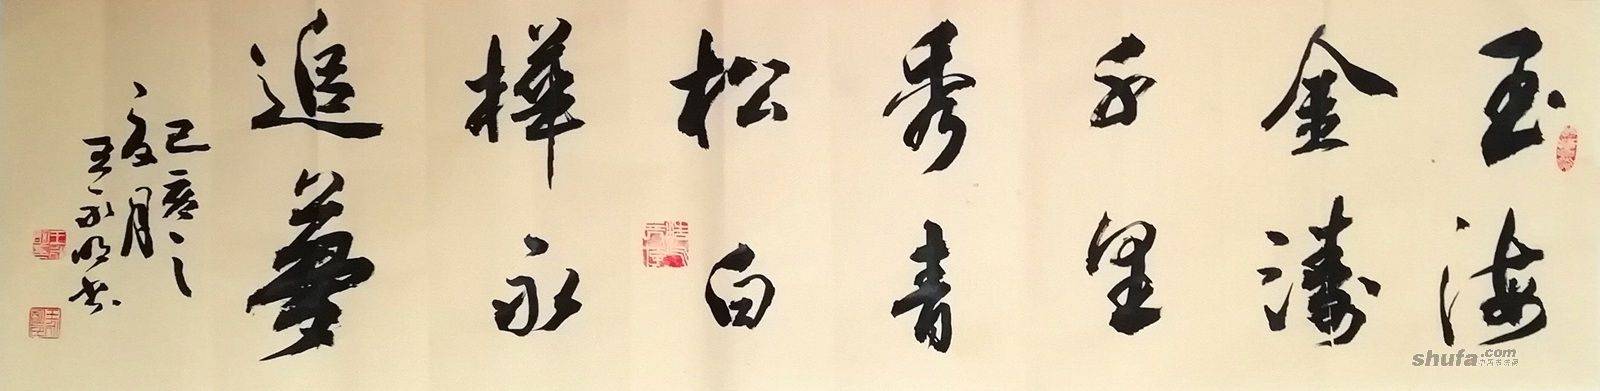 玉海
金濤
千里
秀青
松白
樺永
追夢
己亥之
夏月
王永明书
shufa.com